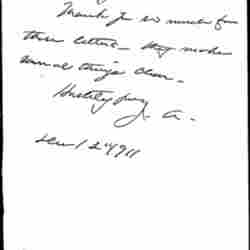 Thank you so much for
these letters - they make
several things clear -
Hastily yours,
J. A.
Dec 12th 1911